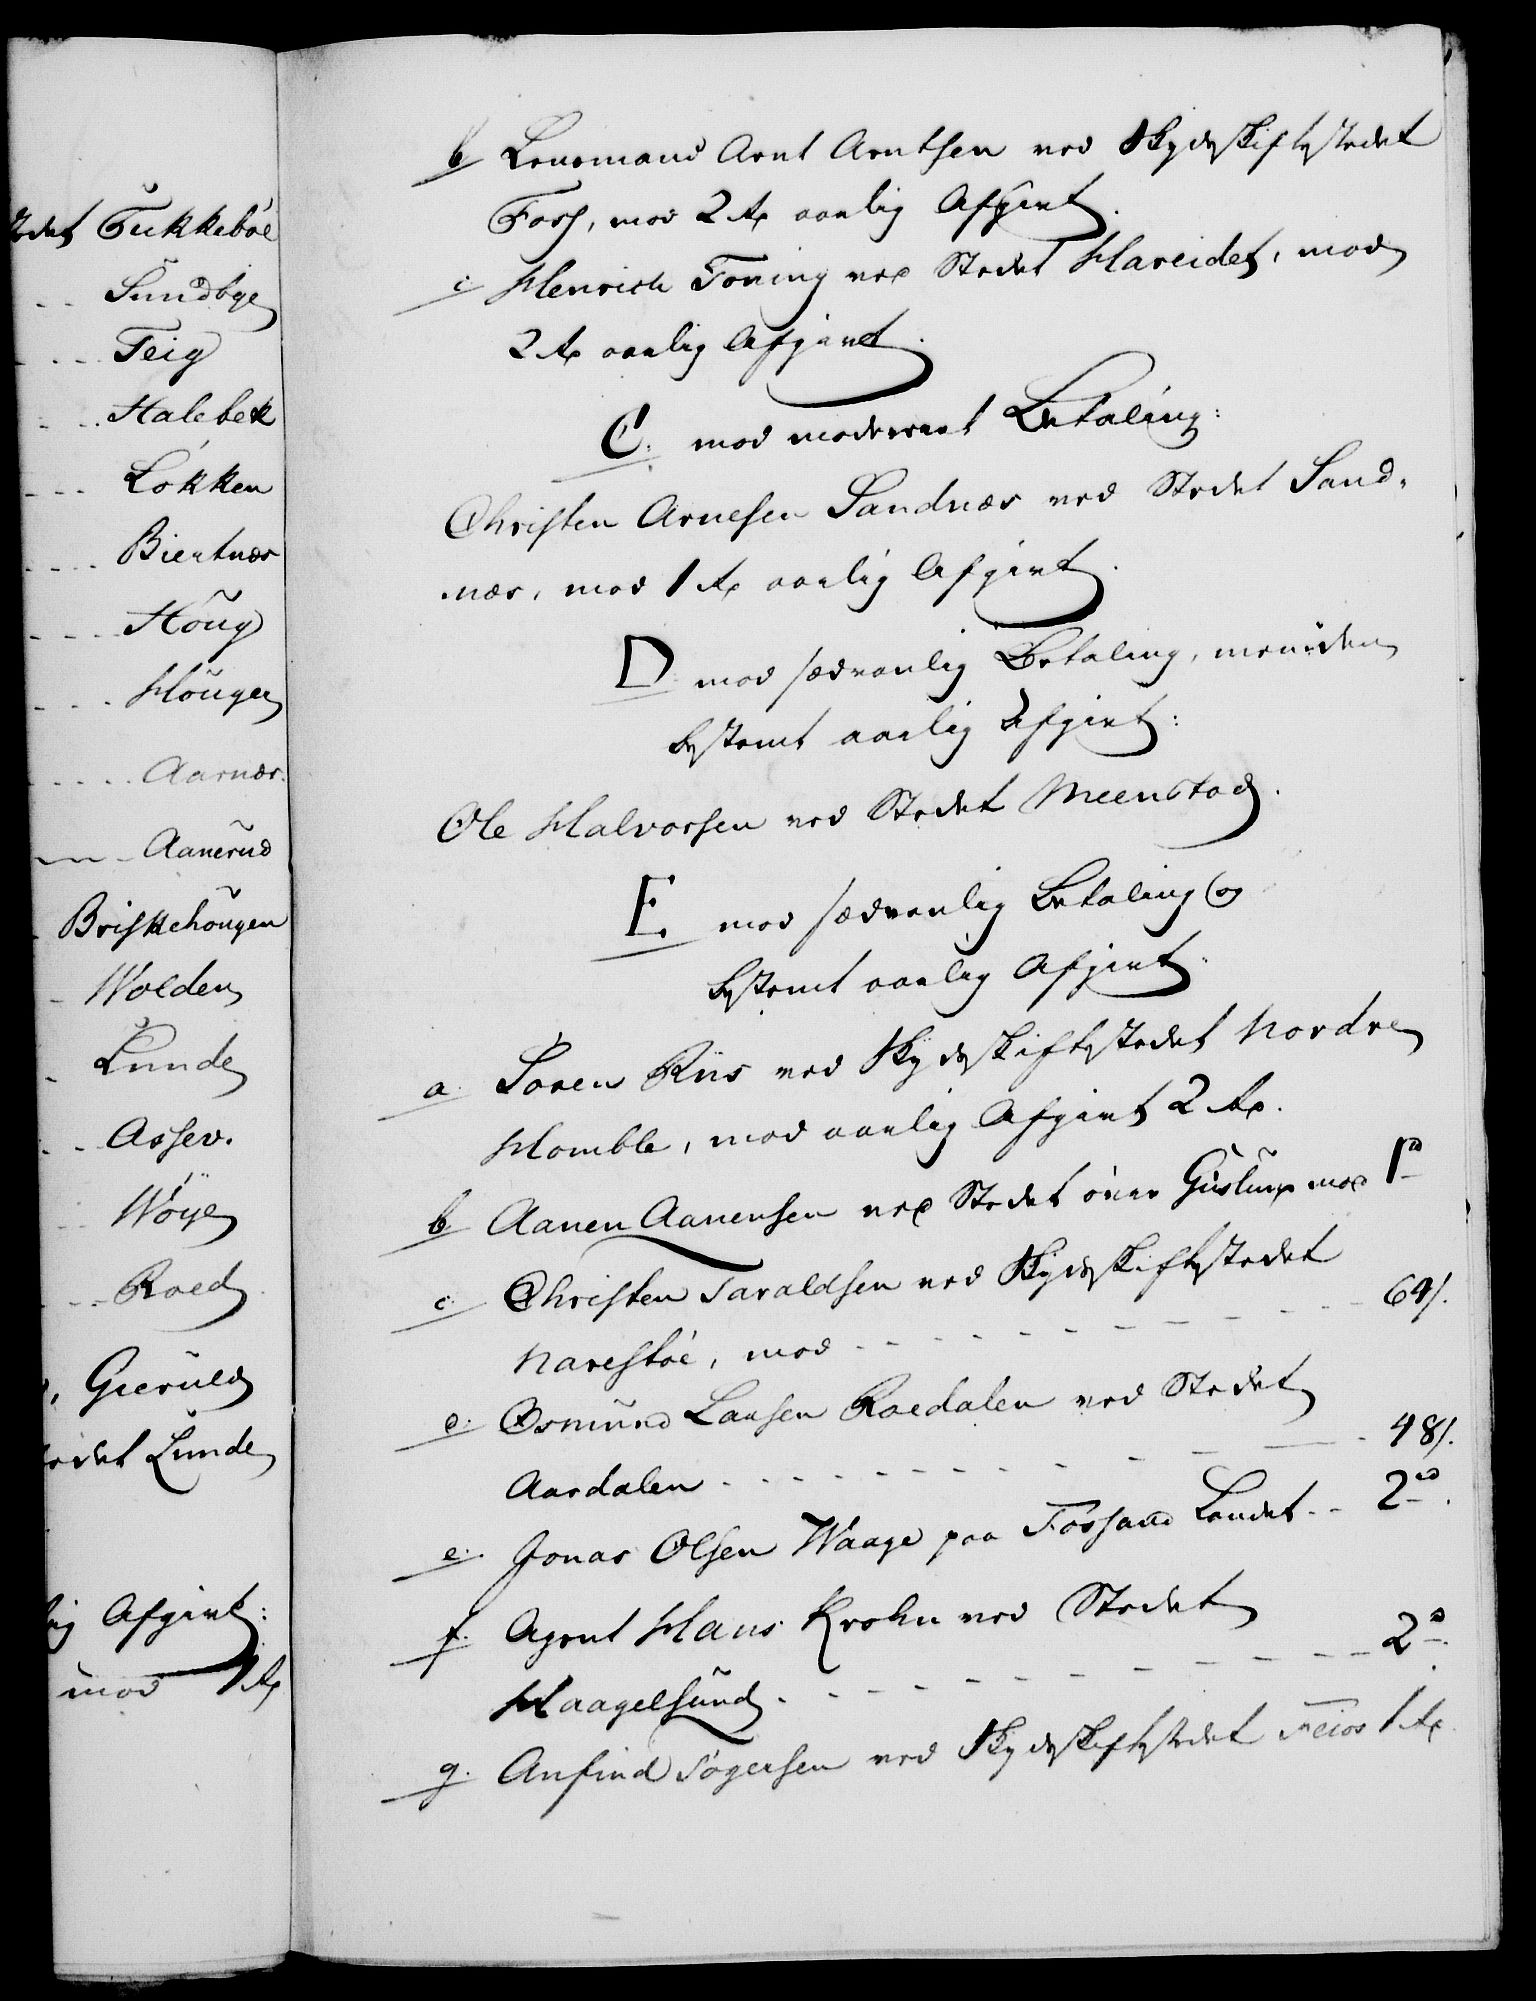 tedet Tukkebøe
Sundbye
Teig
Halebek
Løkken
Biertnæs
Houg
Hougen
Aarnæs
Aanerud
Briskehougen
Wolden
Lunde
Asser.
Wøye
Roed
Gierued
tedet Lunde
lig Afgivt:
mod 1 rd
b Lensmand Arnt Arntsen ved Skydsskiftestedet
Foss, mod 2 rd aarlig Afgivt.
c Henrich Toning ved Stedet Hareidet, mod
2 rd aarlig Afgivt.
C. mod modereret Betaling:
Christen Arnesen Sandnæs ved Stedet Sand-
næs, mod 1 rd aarlig Afgivt.
D mod sædvanlig Betaling, men uden
bestemt aarlig Afgivt:
Ole Halvorsen ved Stedet Meenstad.
E. mod sædvanlig Betaling og
bestemt aarlig Afgivt:
a. Søren Riis ved Skydsskiftestedet Nordre
Homble, mod aarlig Afgivt 2 rd.
b Aanen Aanensen ved Stedet øvre mod 1 rd
c. Christen Taraldsen ved Skydsskiftestedet
Narestøe, mod - - - 64 s.
e. Osmund Larsen Roedalen ved Stedet
Aardalen - - - 48 s.
e. Jonas Olsen Waage paa Fossand Landet - - 2 rd.
f. Agent Hans Krohn ved Stedet
Haagelsund. - - - 2 rd.
g. Anfind Søgersen ved Skydsskiftestedet Feios 1 rd